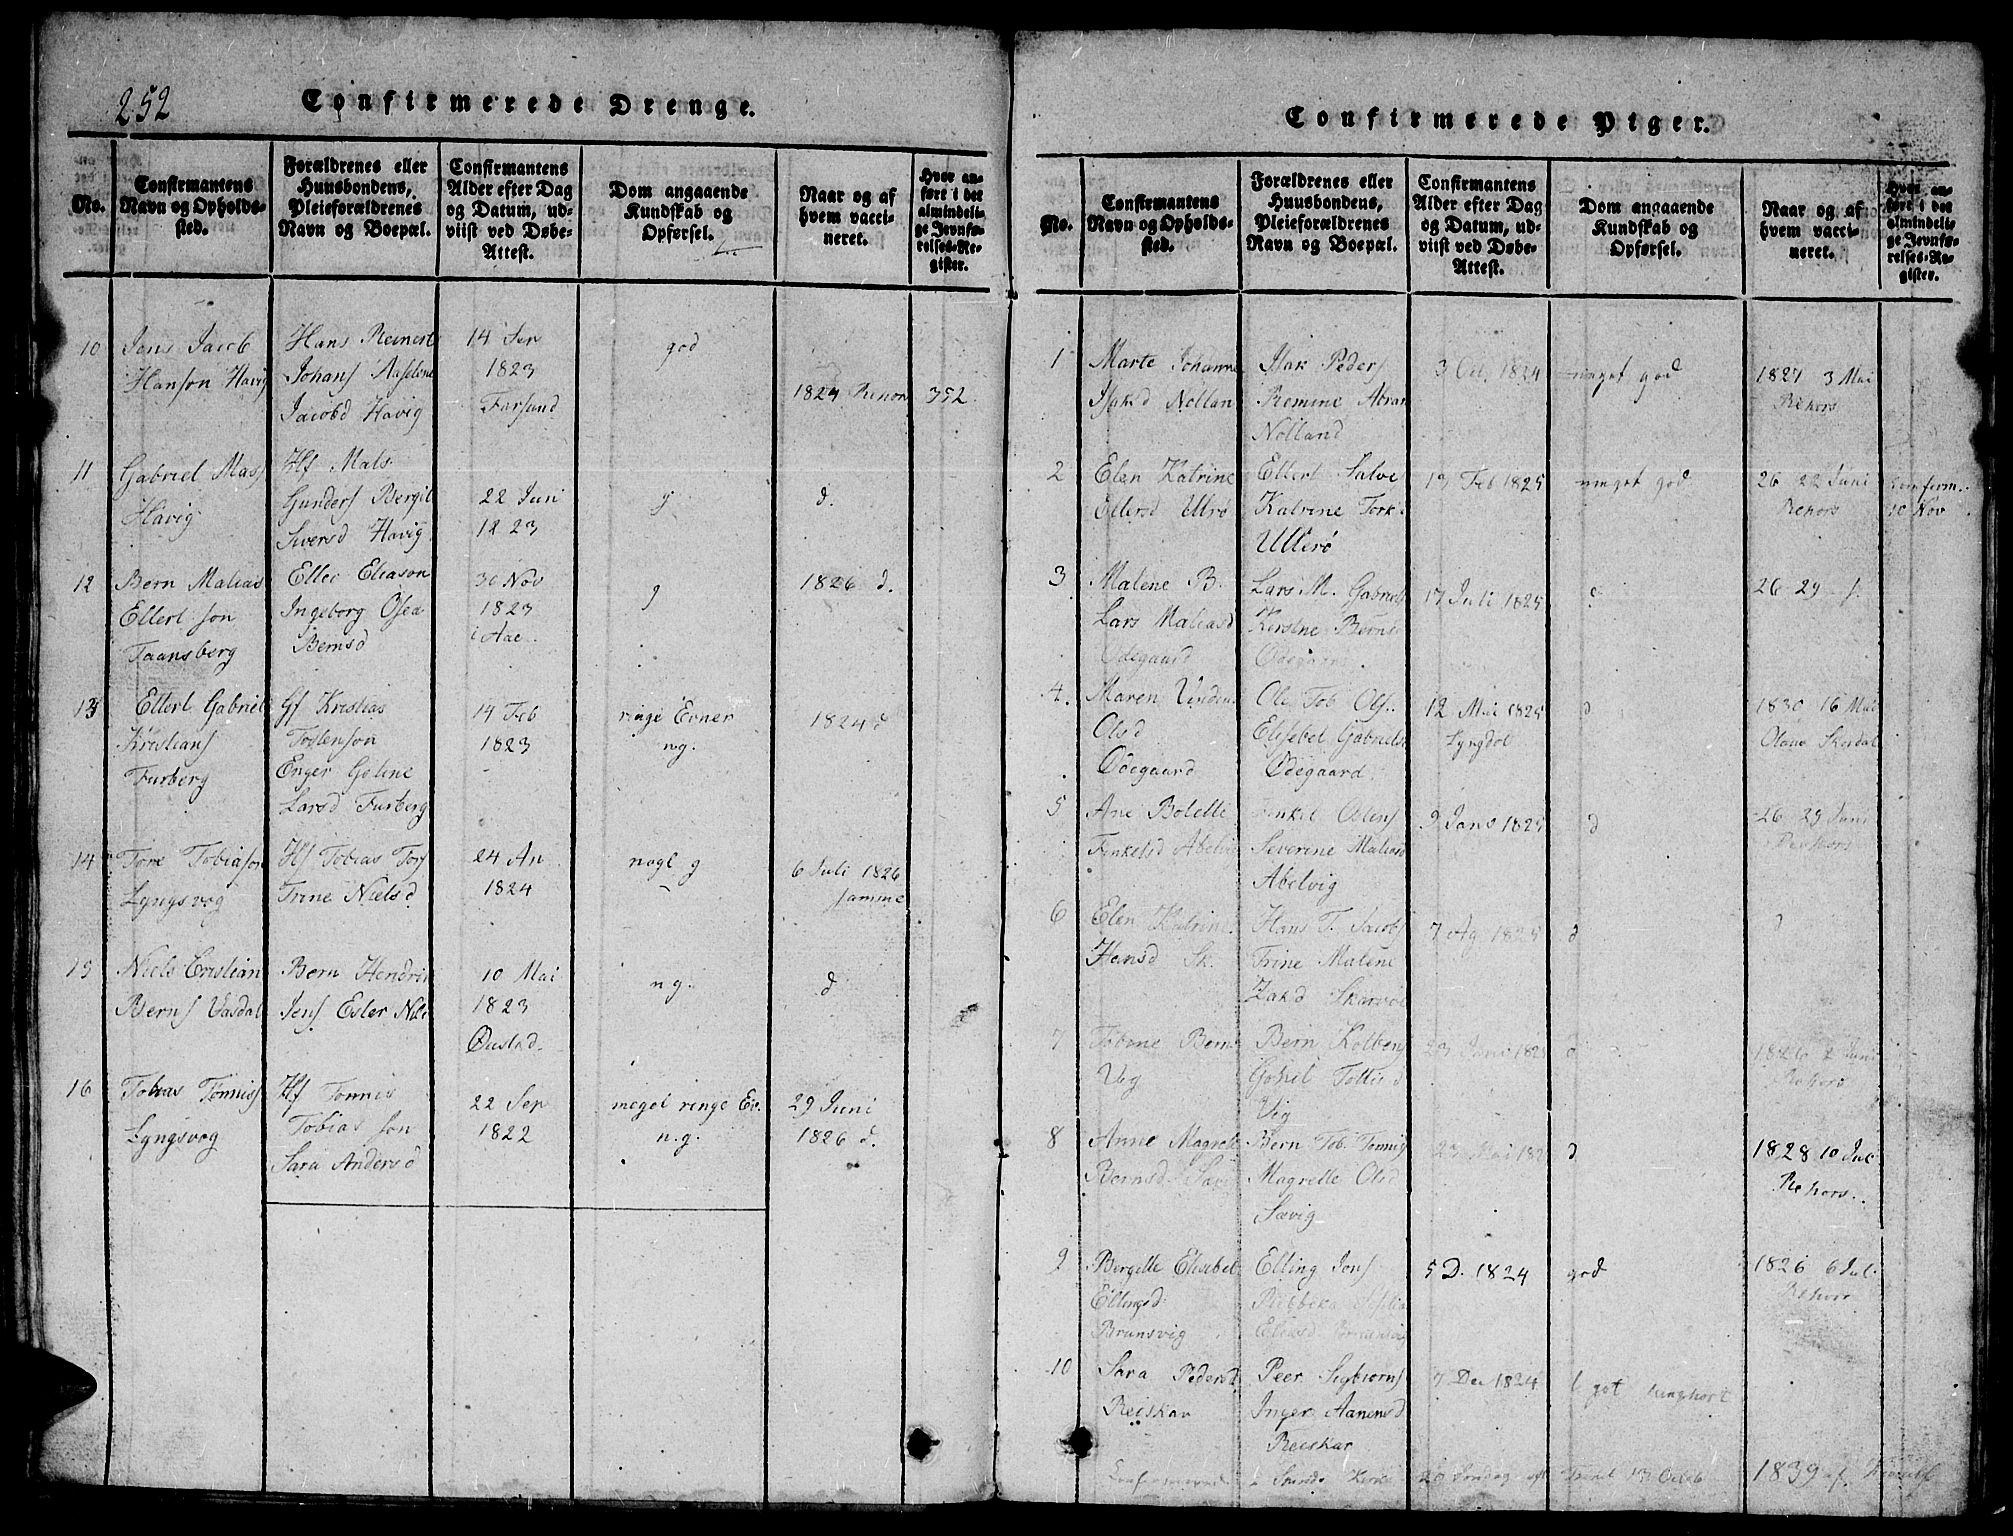 252
Confirmerede Drenge.
No.
Confirmantens Navn og Opholdssted.
Forældrenes eller Huusbondens, Pleieforældrenes Navn og Boepæl.
Confirmantens Alder efter Dag og Datum, udviist ved Døbe-Attest.
Dom angaaende Kundskab og Opførsel.
Naar og af hvem vaccineret.
Hvor anført i det almindelige Jevnførelses-Register.
10
Jens Jacob
Hanson Havig
Hans Reinert
Johans Aaselene
Jacobd Havig
14 Sep
1823
Farsund
god
1824
352
11
Gabriel Mass
Havig
Hf Mats
Gunders Bergit
Siversd Havig
22 Juni
1823
g
d.
12
Bern Malias
Ellert son
Faansberg
Elle Eleason
Ingeborg Osea
Bernsd
30 Nov
1823
i Aae
g
1826 d.
13
Ellert Gabriel
Kristians
Furberg
Gf Kristias
Tostenson
Enger Goline
Larsd Furberg
14 Feb
1823
ringe Evner
ng.
1824 d
14
Tore Tobiason
Lyngsvog
Hf Tobias Tors
Trine Nielsd
24 An
1824
nogl g
6 Juli 1826
samme
15
Niels Cristian
Berns Vasdal
Bern Hendrik
Jens Ester Niels
10 Mai
1823
ng.
d
16
Tobias Tonniss
Lyngsvog
Hf Tonnis
Tobias son
Sara Andersd
22 Sep
1822
meget ringe Ev.
n.g.
29 Juni
1826 d.
Confirmerede Piger.
No.
Confirmantens Navn og Opholdssted.
Forældrenes eller Huusbondens, Pleieforældrenes Navn og Boepæl.
Confirmantens Alder efter Dag og Datum, udviist ved Døbe-Attest.
Dom angaaende Kundskab og Opførsel.
Naar og af hvem vaccineret.
Hvor anført i det almindelige Jevnførelses-Register.
1
Marte Johanne
Isaksd Nolland
Isak Peders
Remine Abra
Nolland
3 Oct. 1824
meget god
1827 3 Mai
Rehors
2
Elen Katrine
Ellersd Ullerø
Ellert Salve
Katrine Tork
Ullerø
19 Feb 1825
meget god
26 22 Juni
Rehors
Confirm.
10 Nov
3
Malene B.
Lars Maliasd
Odegaard
Lars M. Gabriels
Kirstne Bernsd
Odegaard
17 Juli 1825
26 29
4.
Maren
Olsd
Odegaard
Ole Tob Ols.
Elisebet Gabriels
Ødegaard
12 Mai 1825
Lyngdol
d
1830 16 Mai
Olaus Skordal
5
Ane Bolette
Finkelsd Abelvig
Finkel Osens
Severine Malias
Abelvig
9 Jans 1825
d
26 29 Juni
Rehors
6
Elen Katrine
Hansd Sk.
Hans T. Jacobs
Trine Malene
Zakd Skarvø
7 Ag 1825
d
d
7
Tobine Berns
Vig
Bern Kolbens
Gohil
Vig
23 Jani 182
d
1826 2 Juni
Rehors
8
Anne Magrete
Bernsd Savig
Bern Tob. Tonnis
Magrette Olsd
Sævig
23 Mai 182
d
1828 10 Jul
Rehors.
9
Bergitte Elisebet
Ellingsd
Brunsvig
Elling Jens
Rebbeka
Eliasd Brunsvig
5 D. 1824
god
1826 6 Jul
Rehors
10
Sara Pedersd
Reiskar
Peer Sigbiorns
Inger Aanensd
Reiskar
7 Dec 1824
Confirmerede i Spinds Kirke 20 Søndag eft Trinit 13 Octob 1839 af